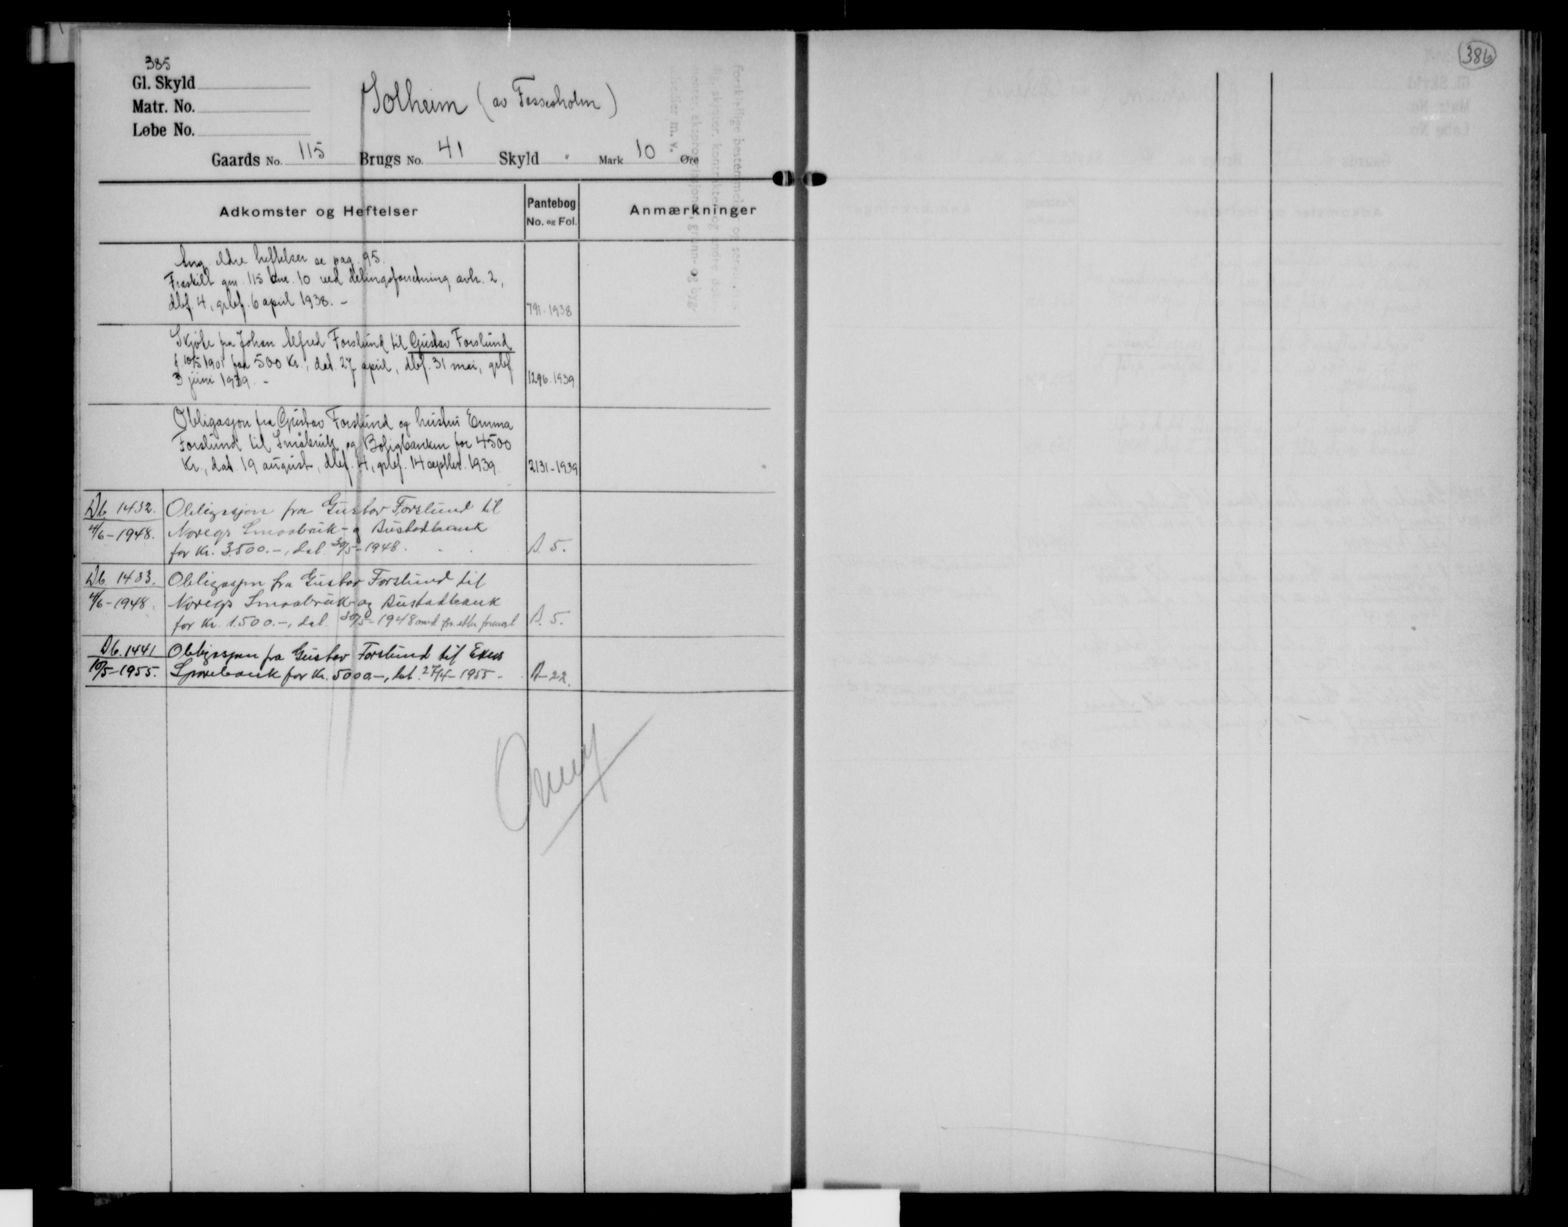 385
Gl. Skyld
Matr. No.
Løbe No.
Solheim (av Fossesholm)
Gaards No. 115 Brugs No. 41 Skyld " Mark 10 Øre
Adkomster og Heftelser
Pantebog
No. og Fol.
Anmærkninger
Ang. eldre heftelser se pag. 95.
Fraskilt gnr. 115 bnr. 10 ved delingsforretning avh. 2,
dbf. 4, grlef. 6 april 1938. -
791-1938
Skjøte fra Johan Alfred Forslund til Gustav Forslund
f. 10/5 1901 for 500 Kr., dat. 27 april, dbf. 31 mai, grlef.
3 juni 1939. -
1296-1939
Obligasjon fra Gustav Forslund og hustru Emma
Forslund til Småbruk og Boligbanken for 4500
Kr., dat. 19 august, dbf. 4, grlef. 14 septbr. 1939.
2131-1939
Db. 1432.
4/6-1948.
Obligasjon fra Gustav Forslund til
Noregs Smaabruk- og Bustadbank
for kr. 3500.-, dat. 30/5-1948.
A. 5.
Db. 1433.
4/6-1948.
Obligasjon fra Gustav Forslund til
Noregs Smaabruk- og Bustadbank
for kr. 1500.-, dat. 30/5-1948
A. 5.
Db. 1441
10/5-1955.
Obligasjon fra Gustav Forslund til Ekers
Sparebank for kr. 5000.-, dat. 27/4-1955.
A-22.
386